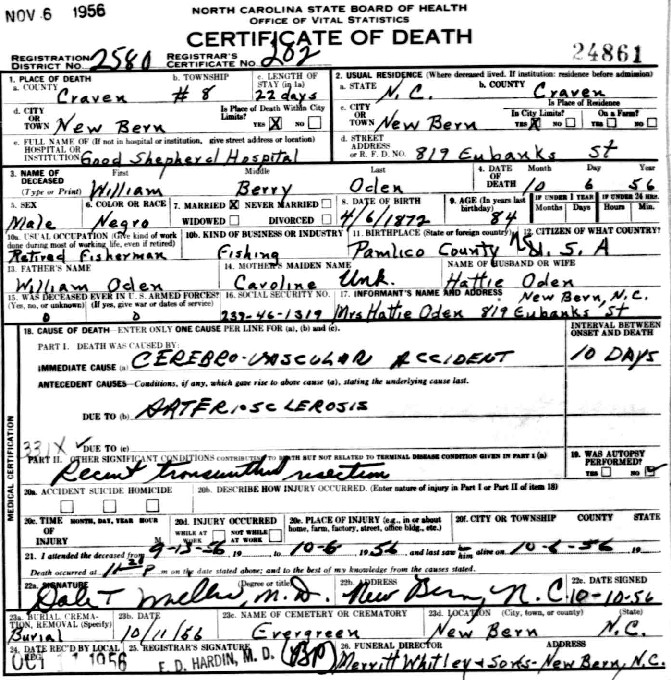 NOV 6 1956
NORTH CAROLINA STATE BOARD OF HEALTH
OFFICE OF VITAL STATISTICS
CERTIFICATE OF DEATH
REGISTRATION DISTRICT NO. 2580 REGISTRAR'S CERTIFICATE NO. 282 24861
1. PLACE OF DEATH b. TOWNSHIP c. LENGTH OF STAY (in 1a) 2. USUAL RESIDENCE (Where deceased lived. If institution: residence before admission)
a. COUNTY Craven # 8 22 days a. STATE N.C. b. COUNTY Craven
d. CITY OR TOWN New Bern Is Place of Death Within City Limits? YES X NO c. CITY OR TOWN New Bern Is Place of Residence In City Limits? YES X NO On a Farm? YES NO
e. FULL NAME OF (If not in hospital or institution, give street address or location) HOSPITAL OR INSTITUTION Good Shepherd Hospital d. STREET ADDRESS OR R. F. D. NO. 819 Eubanks St
3. NAME OF DECEASED (Type or Print) First William Middle Berry Last Oden 4. DATE OF DEATH 10 6 56
5. SEX 6. COLOR OR RACE 7. MARRIED X NEVER MARRIED 8. DATE OF BIRTH 9. AGE (In years last birthday) IF UNDER 1 YEAR IF UNDER 24 HRS.
Male Negro WIDOWED DIVORCED 4/6/1872 84 Months Days Hours Min.
10a. USUAL OCCUPATION (Give kind of work done during most of working life, even if retired) 10b. KIND OF BUSINESS OR INDUSTRY 11. BIRTHPLACE (State or foreign country) 12. CITIZEN OF WHAT COUNTRY?
Retired Fisherman Fishing Pamlico County NC U. S. A
13. FATHER'S NAME 14. MOTHER'S MAIDEN NAME NAME OF HUSBAND OR WIFE
William Oden Caroline Unk. Hattie Oden
15. WAS DECEASED EVER IN U. S. ARMED FORCES? 16. SOCIAL SECURITY NO. 17. INFORMANT'S NAME AND ADDRESS New Bern, N.C.
(Yes, no, or unknown) (If yes, give war or dates of service) 0 0 237-46-1319 Mrs Hattie Oden 819 Eubanks St
18. CAUSE OF DEATH—ENTER ONLY ONE CAUSE PER LINE FOR (a), (b) and (c). INTERVAL BETWEEN ONSET AND DEATH
PART I. DEATH WAS CAUSED BY:
IMMEDIATE CAUSE (a) CEREBRO-VASCULAR ACCIDENT 10 DAYS
ANTECEDENT CAUSES—Conditions, if any, which gave rise to above cause (a), stating the underlying cause last.
DUE TO (b) ARTERIOSCLEROSIS
331X ✓ DUE TO (c)
PART II. OTHER SIGNIFICANT CONDITIONS CONTRIBUTING TO DEATH BUT NOT RELATED TO TERMINAL DISEASE CONDITION GIVEN IN PART I (a) 19. WAS AUTOPSY PERFORMED?
Recent transurethral resection YES NO ✓
20a. ACCIDENT SUICIDE HOMICIDE 20b. DESCRIBE HOW INJURY OCCURRED. (Enter nature of injury in Part I or Part II of item 18)
20c. TIME OF INJURY MONTH, DAY, YEAR HOUR M 20d. INJURY OCCURRED WHILE AT WORK NOT WHILE AT WORK 20e. PLACE OF INJURY (e.g., in or about home, farm, factory, street, office bldg., etc.) 20f. CITY OR TOWNSHIP COUNTY STATE
21. I attended the deceased from 9-15-56 19 to 10-6 1956 and last saw him alive on 10-6-56 19
Death occurred at P m on the date stated above; and to the best of my knowledge from the causes stated.
22a. SIGNATURE (Degree or title) 22b. ADDRESS 22c. DATE SIGNED
Dale T M.D. New Bern, N.C 10-10-56
23a. BURIAL, CREMATION, REMOVAL (Specify) 23b. DATE 23c. NAME OF CEMETERY OR CREMATORY 23d. LOCATION (City, town, or county) (State)
Burial 10/11/56 Evergreen New Bern N.C.
24. DATE REC'D BY LOCAL REG. 25. REGISTRAR'S SIGNATURE 26. FUNERAL DIRECTOR ADDRESS
OCT 11 1956 E. D. HARDIN, M. D. (BP) Merritt Whitley & Sons-New Bern, N.C.
MEDICAL CERTIFICATION